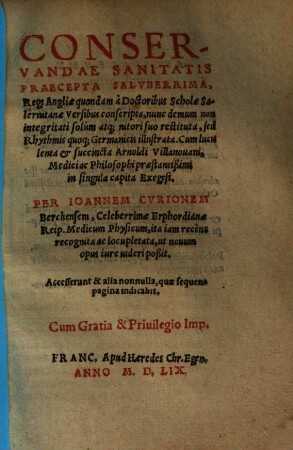 CONSER-
VANDAE SANITATIS
PRAECEPTA SALVBERRIMA,
Regi Angliæ quondam à Doctoribus Scholæ Sa-
lernitanæ Versibus conscripta, nunc demum non
integritati solùm atq; nitori suo restituta, sed
Rhythmis quoq; Germanicis illustrata. Cum lucu
lenta & succincta Arnoldi Villanouani,
Mediciac Philosophi præstantißimi
in singula capita Exegesi.
PER IOANNEM CVRIONEM
Berchensem, Celeberrimæ Erphordianæ
Reip. Medicum Physicum, ita iam recèns
recognita ac locupletata, ut nouum
opus iure uideri poßit.
Accesserunt & alia nonnulla, quæ sequens
pagina indicabit.
Cum Gratia & Priuilegio Imp.
FRANC. Apud Hæredes Chr. Egen.
ANNO M. D. LIX.